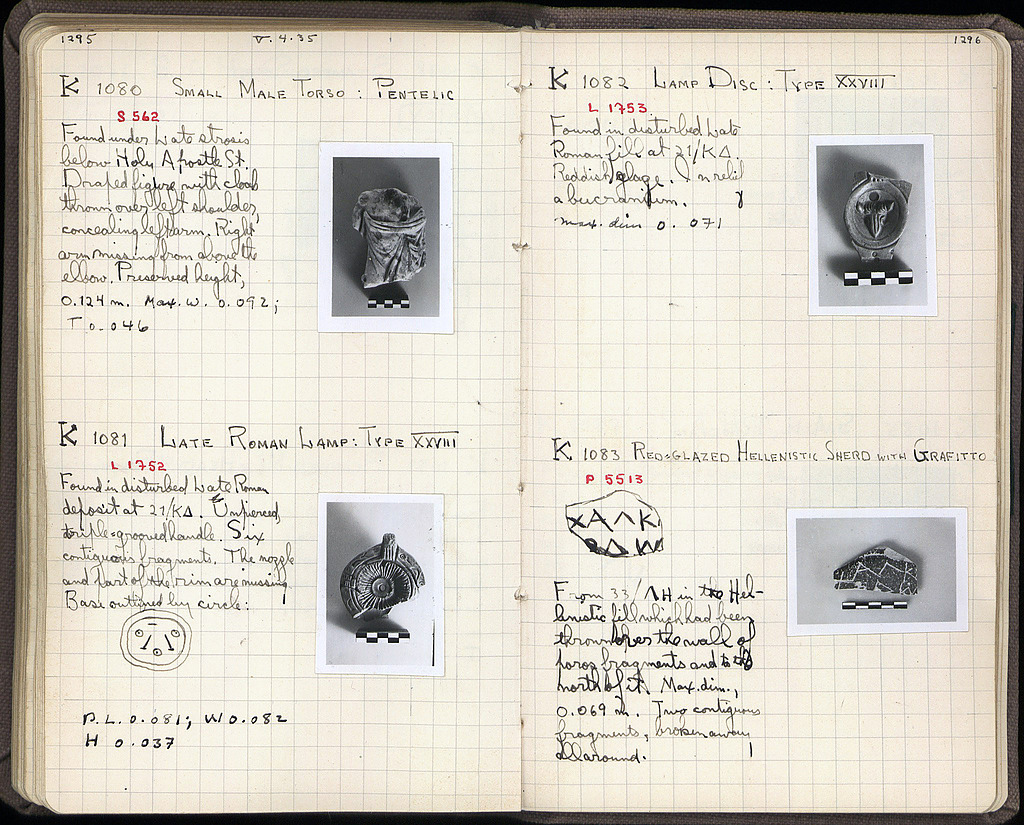 1295
V. 4. 35
K 1080 SMALL MALE TORSO : PENTELIC
S 562
Found under Late strosis
below Holy Apostle St.
Draped figure with cloak
thrown over left shoulder,
concealing left arm. Right
arm missing from above the
elbow. Preserved height,
0.124 m. Max. W. 0.092;
T 0.046
K 1081 LATE ROMAN LAMP: TYPE XXVIII
L 1752
Found in disturbed Late Roman
deposit at 21/ΚΔ. Unpierced,
triple-grooved handle. Six
contiguous fragments. The nozzle
and part of the rim are missing.
Base outlined by circle:
P. L. 0.081; W 0.082
H 0.037
1296
K 1082 LAMP DISC : TYPE XXVIII
L 1753
Found in disturbed Late
Roman fill at 21/ΚΔ.
Reddish glaze. In relief
a bucranium.
max. dim 0.071
K 1083 RED-GLAZED HELLENISTIC SHERD WITH GRAFITTO
P 5513
ΧΑΛΚ
From 33/ΛΗ in the Hel-
lenistic fill which had been
thrown over the wall of
poros fragments and to the
north of it. Max. dim.,
0.069 m. Two contiguous
fragments, broken away
all around.